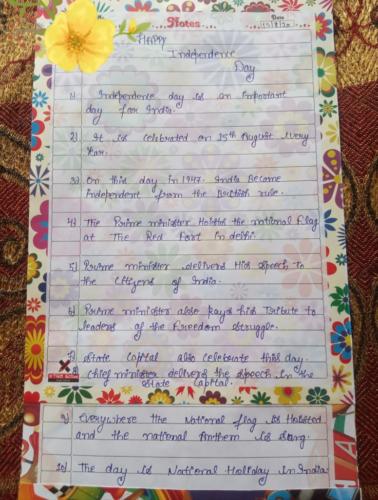 Notes
Date
Happy
Independence
Day
1) Independence day is an important
day for India.
2) It is celebrated on 15th August every
Year.
3) On this day in 1947. India Became
independent from the British rule.
4) The Prime minister Hoisted the national Flag
at The Red Fort in delhi.
5) Prime minister delivers His speech to
the Citizens of India.
6) Prime minister also pays his Tribute to
leaders of the Freedom struggle.
7) State Capital also celebrate this day.
8) chief minister delivers the speech in the
state capital.
9) Everywhere the National flag is Hoisted
and the national Anthem is sang.
10) The day is National Holiday in India